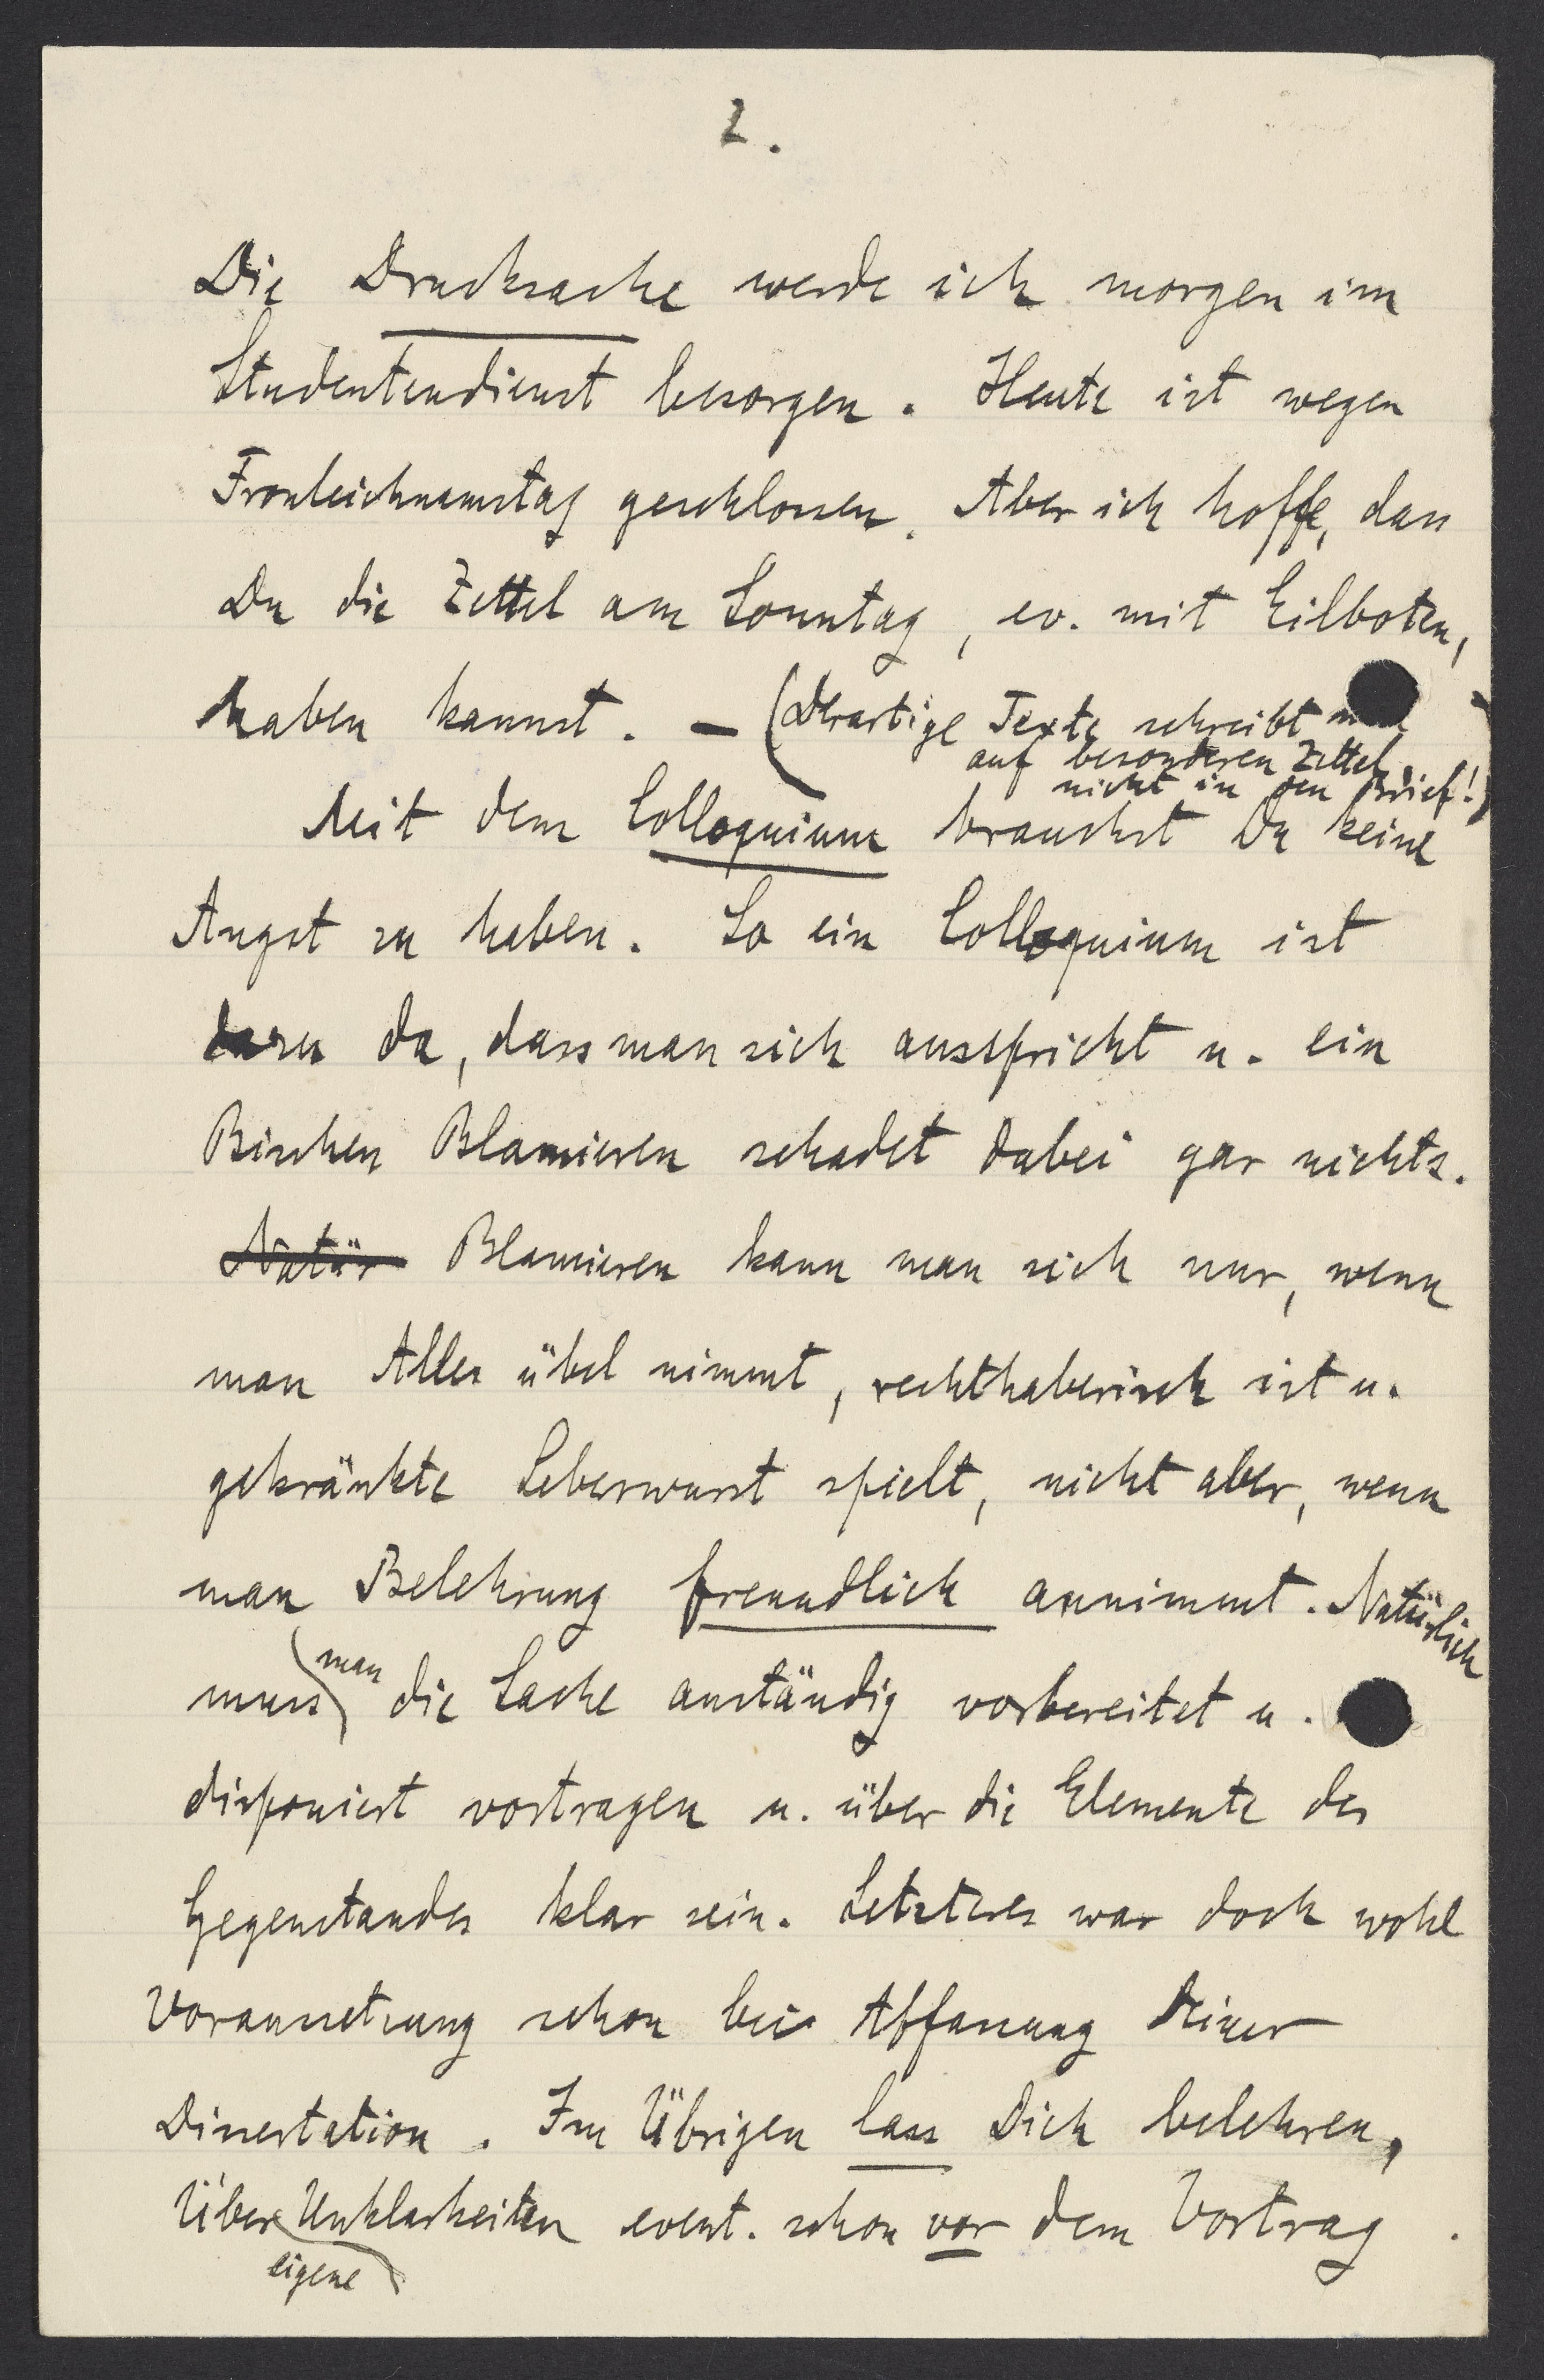 2.
Die Drucksache werde ich morgen im
Studentendienst besorgen. Heute ist wegen
Fronleichnamstag geschlossen. Aber ich hoffe, dass
Du die Zettel am Sonntag, ev. mit Eilboten,
haben kannst. – (Derartige Texte schreibt
auf besonderen Zettel,
nicht in den Brief!)
Mit dem Colloquium brauchst Du keine
Angst zu haben. So ein Colloquium ist
dazu da, dass man sich ausspricht u. ein
Bischen Blamieren schadet dabei gar nichts.
Natür Blamieren kann man sich nur, wenn
man Alles übel nimmt, rechthaberisch ist u.
gekränkte Leberwurst spielt, nicht aber, wenn
man Belehrung freundlich annimmt. Natürlich
muss man die Sache anständig vorbereitet u.
disponiert vortragen u. über die Elemente des
Gegenstandes klar sein. Letzteres war doch wohl
Voraussetzung schon bei Abfassung Deiner
Dissertation. Im Übrigen lass Dich belehren,
Über eigene Unklarheiten event. schon vor dem Vortrag.